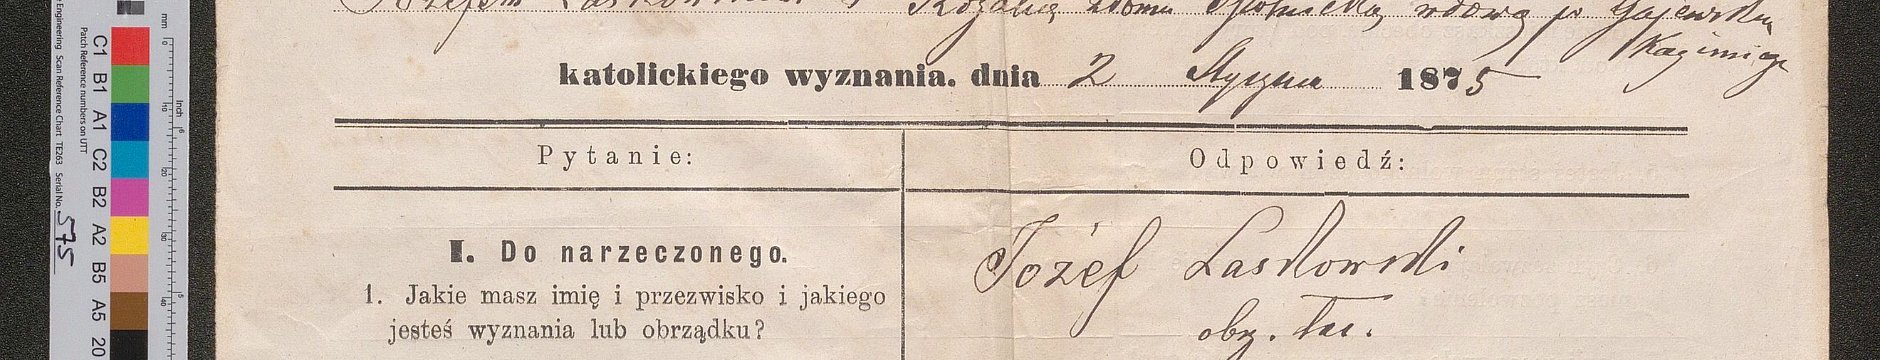 Józefem Laskowskim a Rozalią z domu wdową po Gajewskim
Kazimierz
katolickiego wyznania. dnia 2 Stycznia 1875
Pytanie: Odpowiedź:
I. Do narzeczonego. Józef Laskowski
1. Jakie masz imię i przezwisko i jakiego
jesteś wyznania lub obrządku? obrz. łac.
Engineering Scan Reference Chart TE263 Serial No. 575
Patch Reference numbers on UTT
C1 B1 A1 C2 B2 A2 B5 A5 20
mm
inch